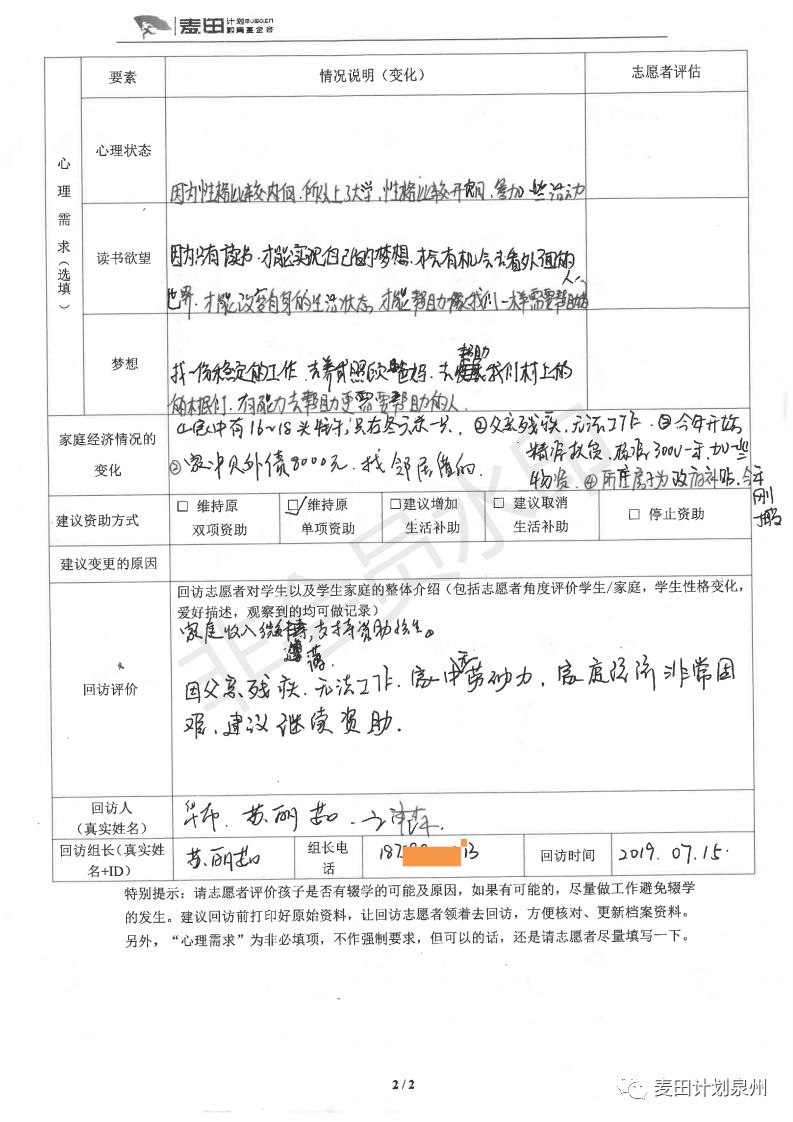 麦田 计划 MUWO.CN 教育基金会
要素 情况说明（变化） 志愿者评估
心理需求（选填）
心理状态
因为性格比较内向，所以上了大学，性格比较开朗，参加些活动
读书欲望
因为只有读书，才能实现自己的梦想，才会有机会去看外面的
世界，才能改变自身的生活状态，才能帮助像我们一样需要帮助的人
梦想
找一份稳定的工作，去养或照顾爸妈，去帮助我们村上的
有能力去帮助更需要帮助的人。
家庭经济情况的变化
①家中有16~18头牦牛，②父亲残疾，无法工作 ③今年开始
精准扶贫，标准300/年，加一些
外债9000元，找邻居借的。
物资。④所住房子为政府补贴，今年刚
建议资助方式
□ 维持原双项资助
☑维持原单项资助
□建议增加生活补助
□ 建议取消生活补助
□ 停止资助
建议变更的原因
回访评价
回访志愿者对学生以及学生家庭的整体介绍（包括志愿者角度评价学生/家庭，学生性格变化，
爱好描述，观察到的均可做记录）
家庭收入微薄，支持资助学生。
因父亲残疾，无法工作，家中无劳动力，家庭经济非常困
难，建议继续资助。
回访人（真实姓名）
苏丽茹
回访组长（真实姓名+ID） 苏丽茹 组长电话 187 13 回访时间 2019.07.15
特别提示：请志愿者评价孩子是否有辍学的可能及原因，如果有可能的，尽量做工作避免辍学
的发生。建议回访前打印好原始资料，让回访志愿者领着去回访，方便核对、更新档案资料。
另外，“心理需求”为非必填项，不作强制要求，但可以的话，还是请志愿者尽量填写一下。
非会员水印
2 / 2
麦田计划泉州